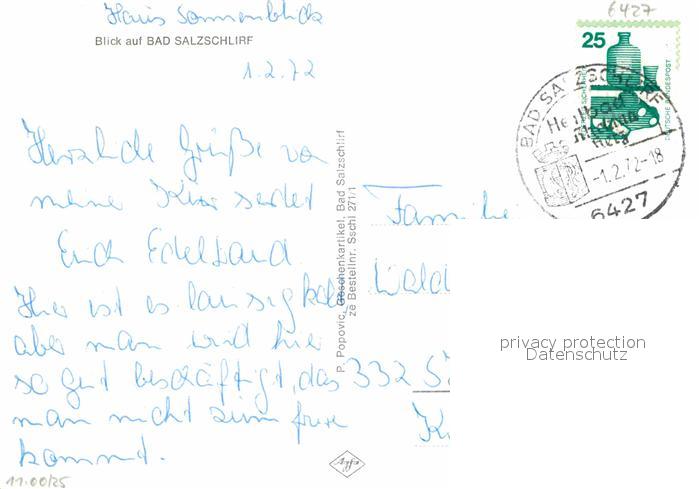 Haus Sonnenblick
Blick auf BAD SALZSCHLIRF
1.2.72
Herzliche Grüße von
meine Kur sendet
Erich Edeltraud
Hier ist es lausig kalt
aber man wird hier
so gut beschäftigt, das
man nicht zum frieren
kommt.
11.00/25
P. Popovic, Geschenkartikel, Bad Salzschlirf
ze Bestellnr. Sschl 271/1
Agfa
6427
25
SICHERHEIT
DEUTSCHE BUNDESPOST
BAD SALZSCHLIRF
Heilbad
Rheuma
Herz
-1.2.72-18
6427
Familie
Wald
332
privacy protection
Datenschutz